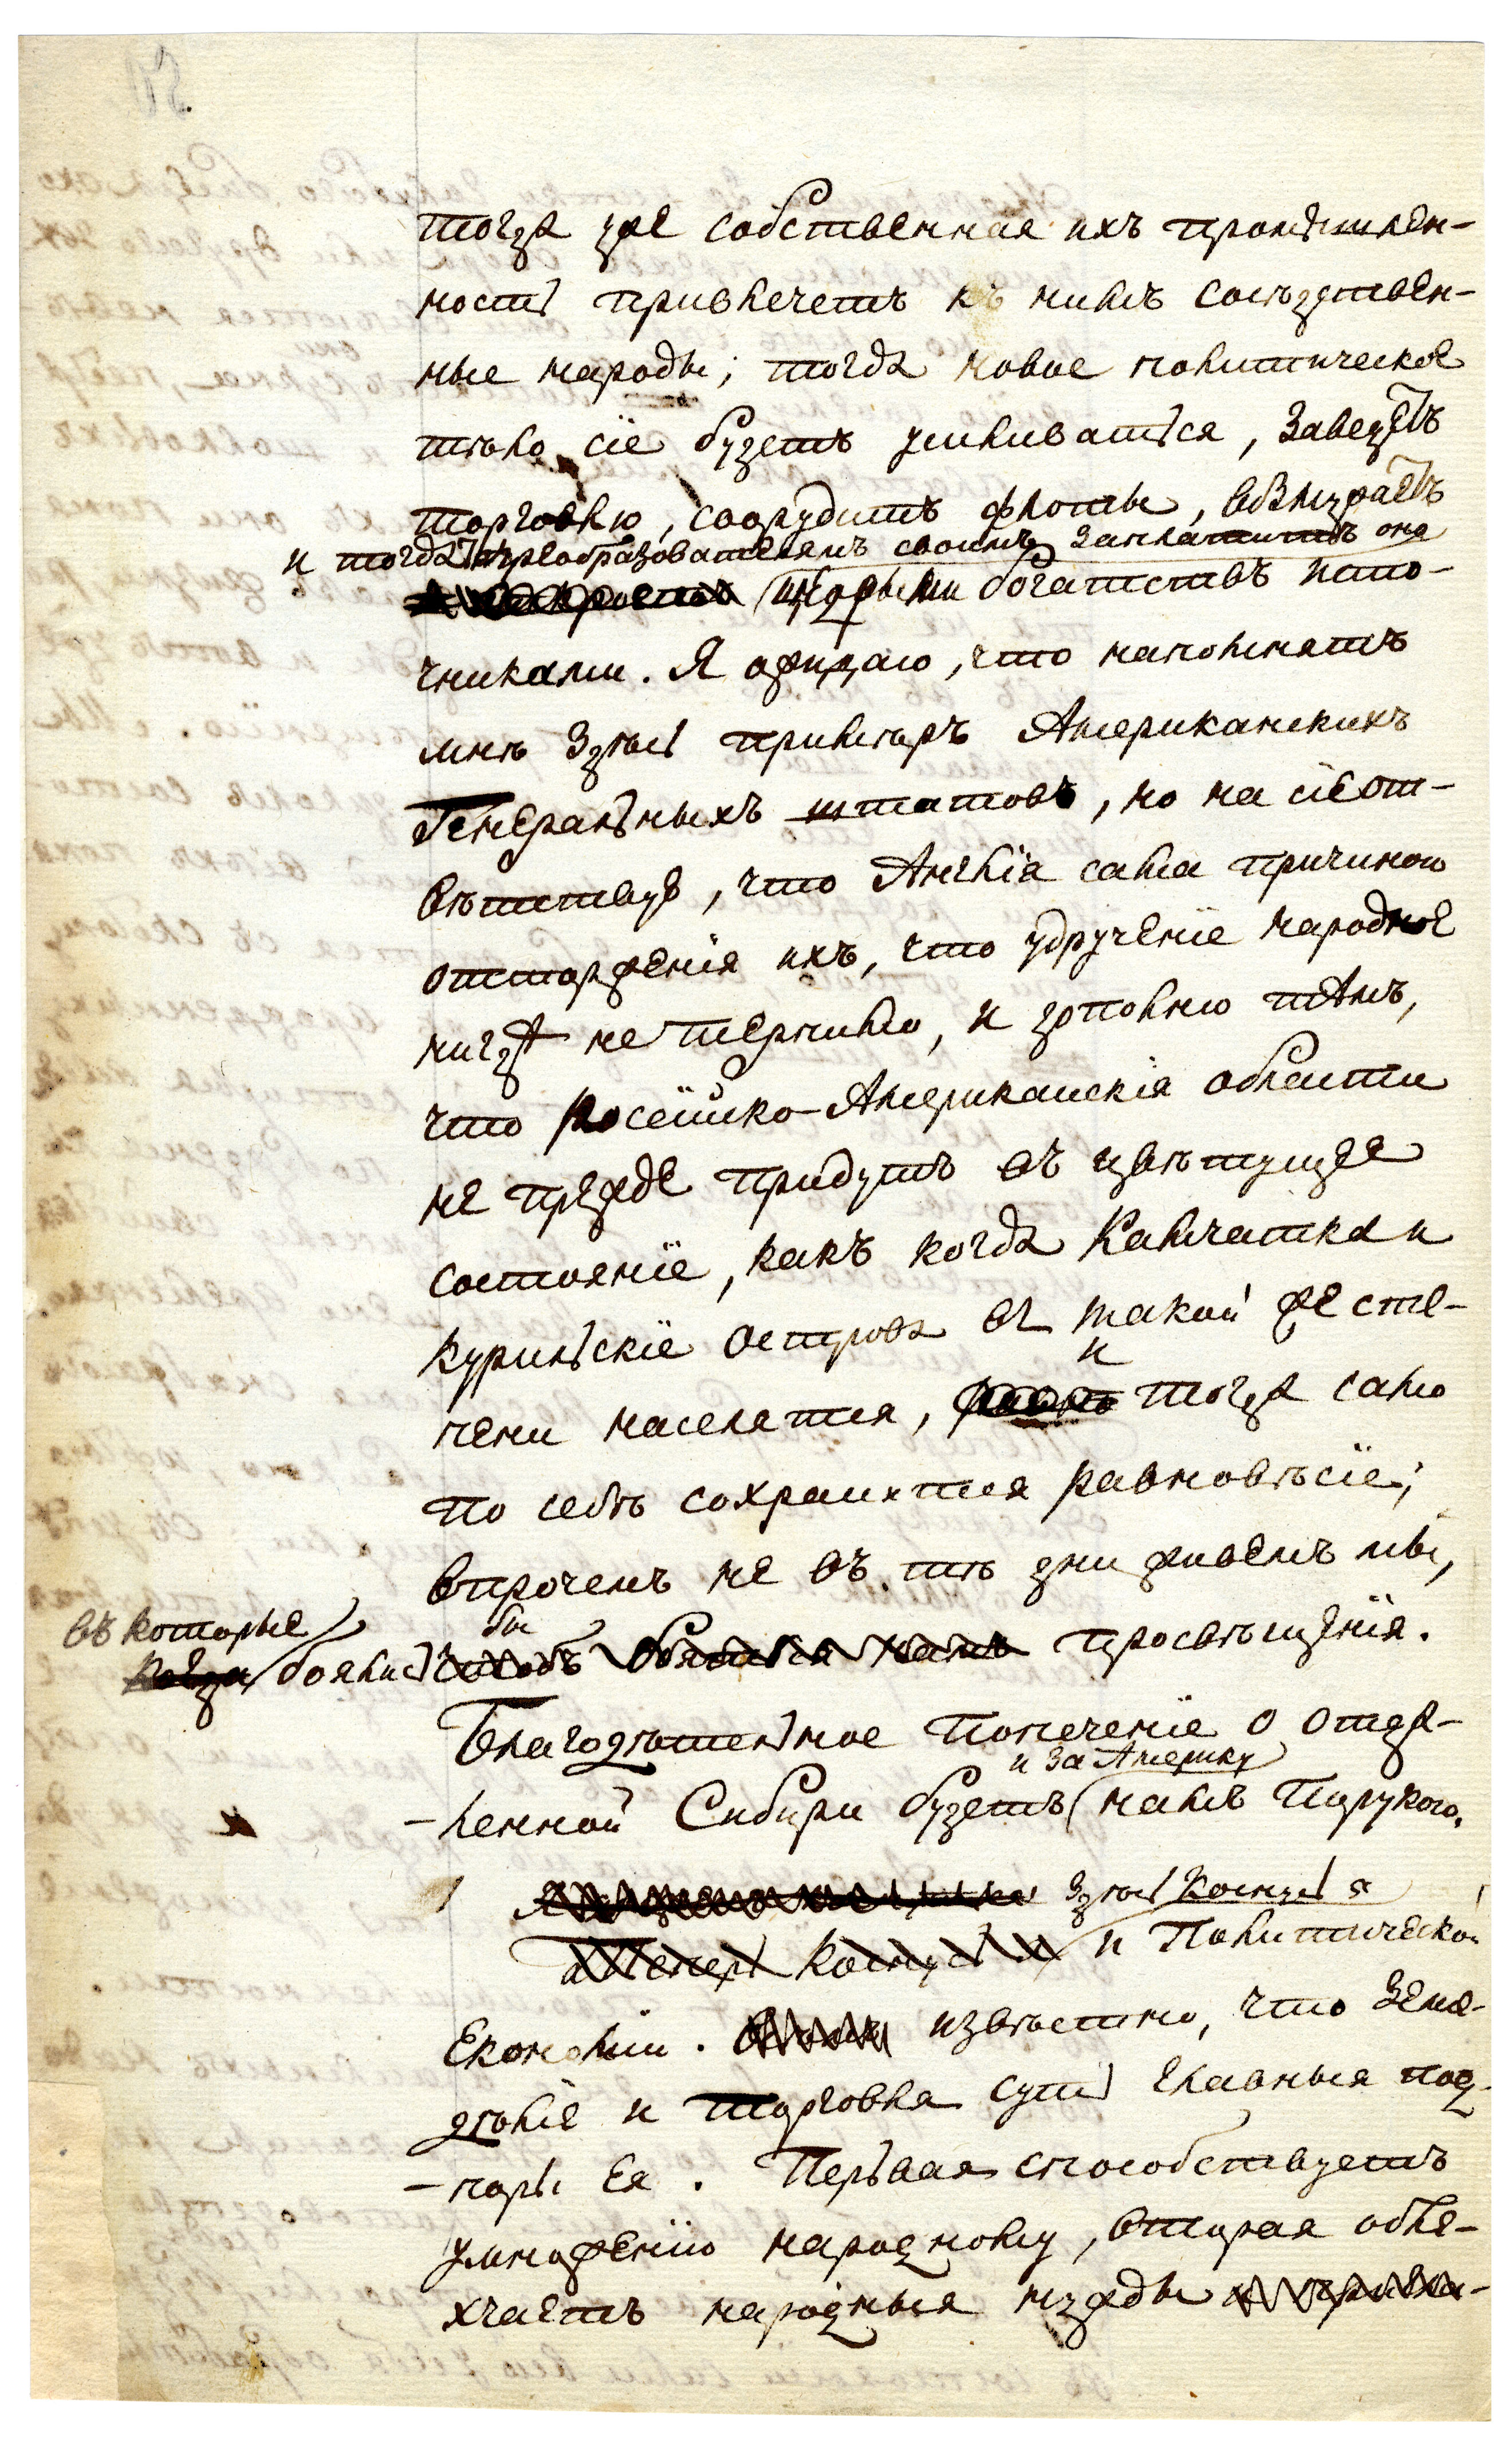 тогда же собственная ихъ промышлен-
ность привлечетъ къ нимъ сосѣдствен-
ные народы; тогда новое политическое
тѣло сіе будетъ усиливаться, заведетъ
торговлю, соорудитъ флоты,
и тогда преобразователямъ своимъ заплатитъ оно
новыми богатствъ исто-
чниками. Я ожидаю, что напомнятъ
мнѣ здѣсь примѣръ Американскихъ
Генеральныхъ штатовъ, но на сіе от-
вѣтствую, что Англія сама причиною
отторженія ихъ, что удрученіе народное
нигдѣ не терпимо, и дополню тѣмъ,
что Россійско-Американскія области
не прежде придутъ въ цвѣтущее
состояніе, какъ когда Камчатка и
Курильскіе острова въ такой же сте-
и
пени населятся, тогда само
по себѣ сохранится равновѣсіе;
впрочемъ не въ тѣ дни живемъ мы,
въ которые бы
боялись просвѣщенія.
Благодѣтельное попеченіе о отда-
и за Америку
-ленной Сибири будетъ намъ порукою.
здѣсь коснусь я
а теперь коснусь я и Политической
Економіи. извѣстно, что земле-
дѣліе и торговля суть главныя под-
-поры ея. Первая способствуетъ
умноженію народному, вторая обле-
хчаетъ народныя нужды